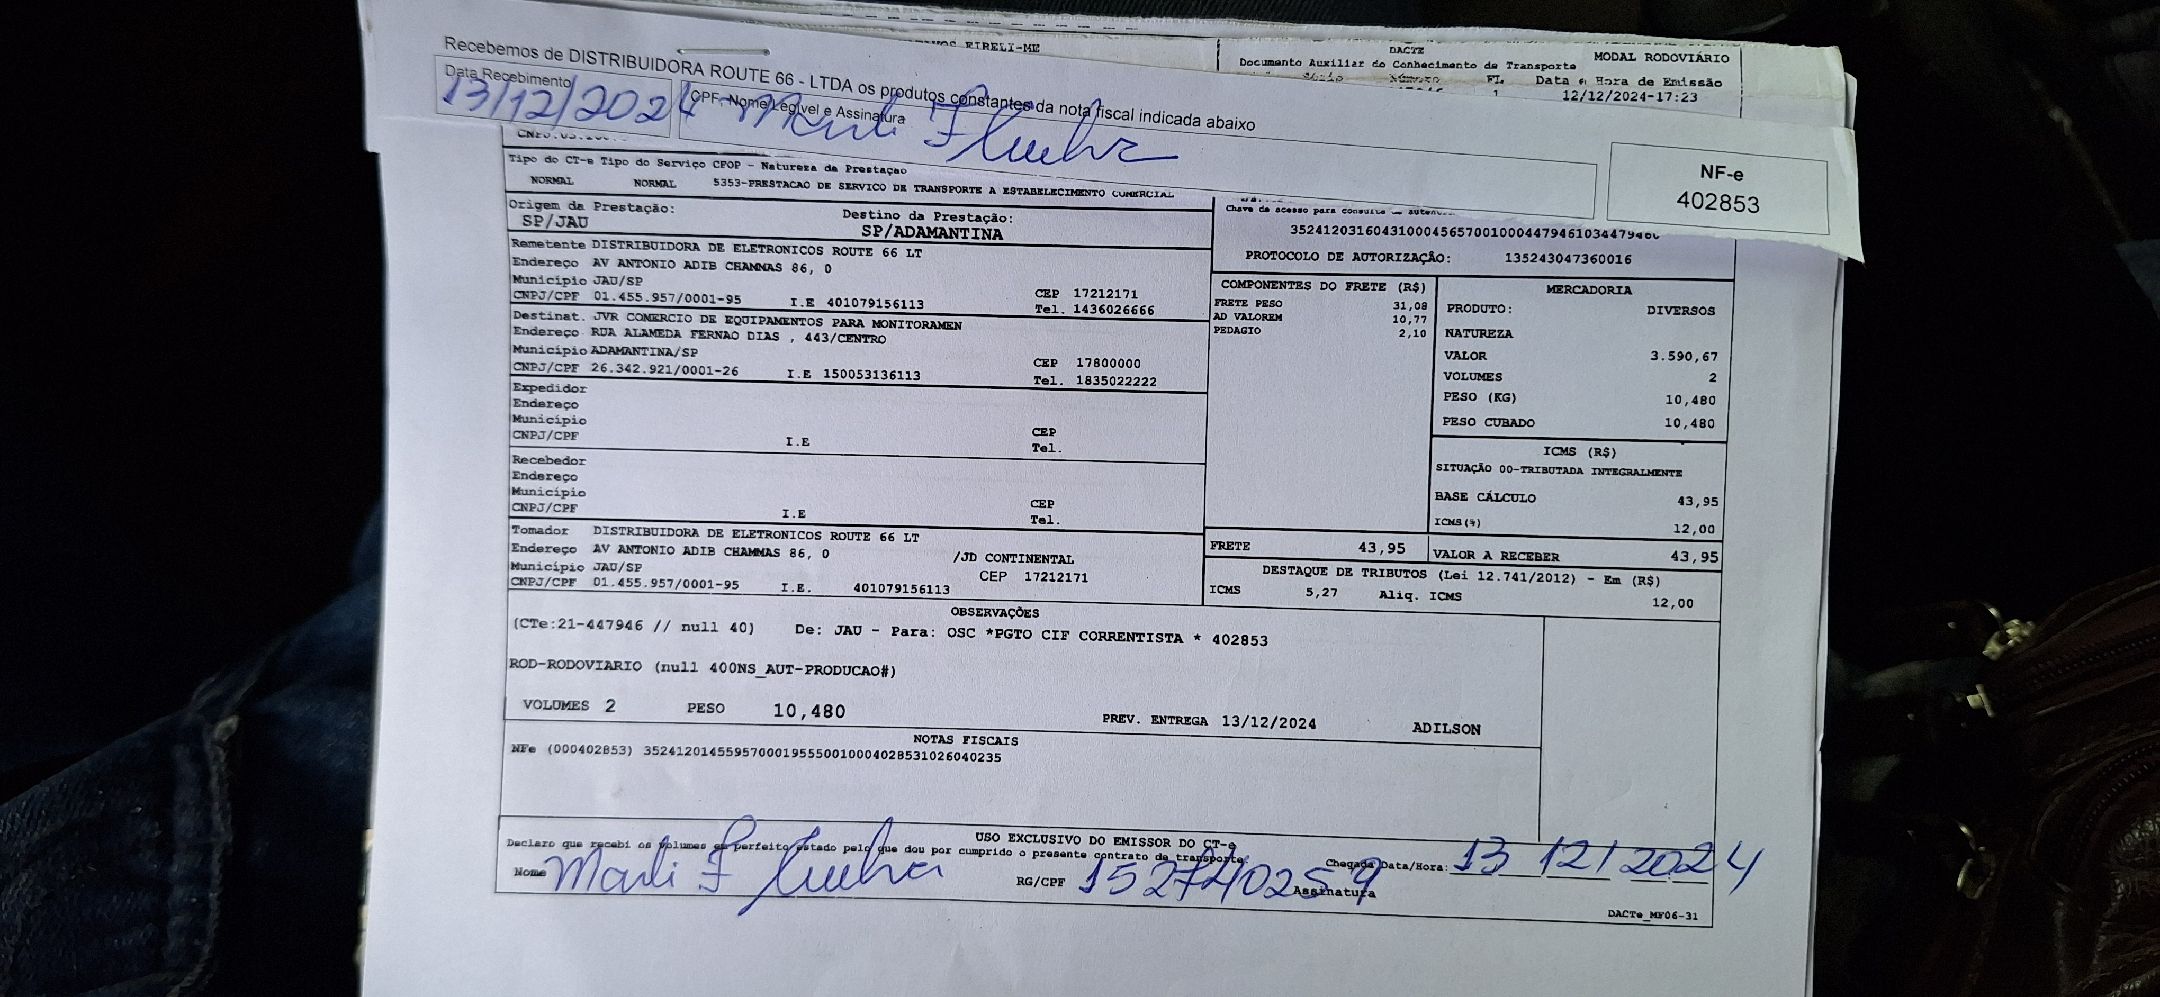 Recebemos de DISTRIBUIDORA ROUTE 66 - LTDA os produtos constantes da nota fiscal indicada abaixo
Data Recebimento
13/12/2024
CPF, Nome Legível e Assinatura
Marli F
NF-e
402853
EIRELI-ME
DACTE
Documento Auxiliar do Conhecimento de Transporte
MODAL RODOVIÁRIO
FL
1
Data e Hora de Emissão
12/12/2024-17:23
Tipo do CT-e Tipo do Serviço CFOP - Natureza da Prestação
NORMAL NORMAL 5353-PRESTACAO DE SERVICO DE TRANSPORTE A ESTABELECIMENTO COMERCIAL
Origem da Prestação:
SP/JAU
Destino da Prestação:
SP/ADAMANTINA
Chave de acesso para consulta de
PROTOCOLO DE AUTORIZAÇÃO: 135243047360016
Remetente DISTRIBUIDORA DE ELETRONICOS ROUTE 66 LT
Endereço AV ANTONIO ADIB CHAMMAS 86, 0
Município JAU/SP CEP 17212171
CNPJ/CPF 01.455.957/0001-95 I.E 401079156113 Tel. 1436026666
Destinat. JVR COMERCIO DE EQUIPAMENTOS PARA MONITORAMEN
Endereço RUA ALAMEDA FERNAO DIAS , 443/CENTRO
Município ADAMANTINA/SP CEP 17800000
CNPJ/CPF 26.342.921/0001-26 I.E 150053136113 Tel. 1835022222
Expedidor
Endereço
Município CEP
CNPJ/CPF I.E Tel.
Recebedor
Endereço
Município CEP
CNPJ/CPF I.E Tel.
Tomador DISTRIBUIDORA DE ELETRONICOS ROUTE 66 LT
Endereço AV ANTONIO ADIB CHAMMAS 86, 0 /JD CONTINENTAL
Município JAU/SP CEP 17212171
CNPJ/CPF 01.455.957/0001-95 I.E. 401079156113
COMPONENTES DO FRETE (R$)
FRETE PESO 31,08
AD VALOREM 10,77
PEDAGIO 2,10
MERCADORIA
PRODUTO: DIVERSOS
NATUREZA
VALOR 3.590,67
VOLUMES 2
PESO (KG) 10,480
PESO CUBADO 10,480
ICMS (R$)
SITUAÇÃO 00-TRIBUTADA INTEGRALMENTE
BASE CÁLCULO 43,95
ICMS(%) 12,00
FRETE 43,95
VALOR A RECEBER 43,95
DESTAQUE DE TRIBUTOS (Lei 12.741/2012) - Em (R$)
ICMS 5,27 Aliq. ICMS 12,00
OBSERVAÇÕES
(CTe:21-447946 // null 40) De: JAU - Para: OSC *PGTO CIF CORRENTISTA * 402853
ROD-RODOVIARIO (null 400NS_AUT-PRODUCAO#)
VOLUMES 2 PESO 10,480 PREV. ENTREGA 13/12/2024 ADILSON
NOTAS FISCAIS
NFe (000402853) 35241201455957000195550010004028531026040235
USO EXCLUSIVO DO EMISSOR DO CT-e
Declaro que recebi os volumes em perfeito estado pelo que dou por cumprido o presente contrato de transporte
Nome Marli F
RG/CPF
Assinatura
Chegada Data/Hora: 13 12/2024
DACTe_MF06-31